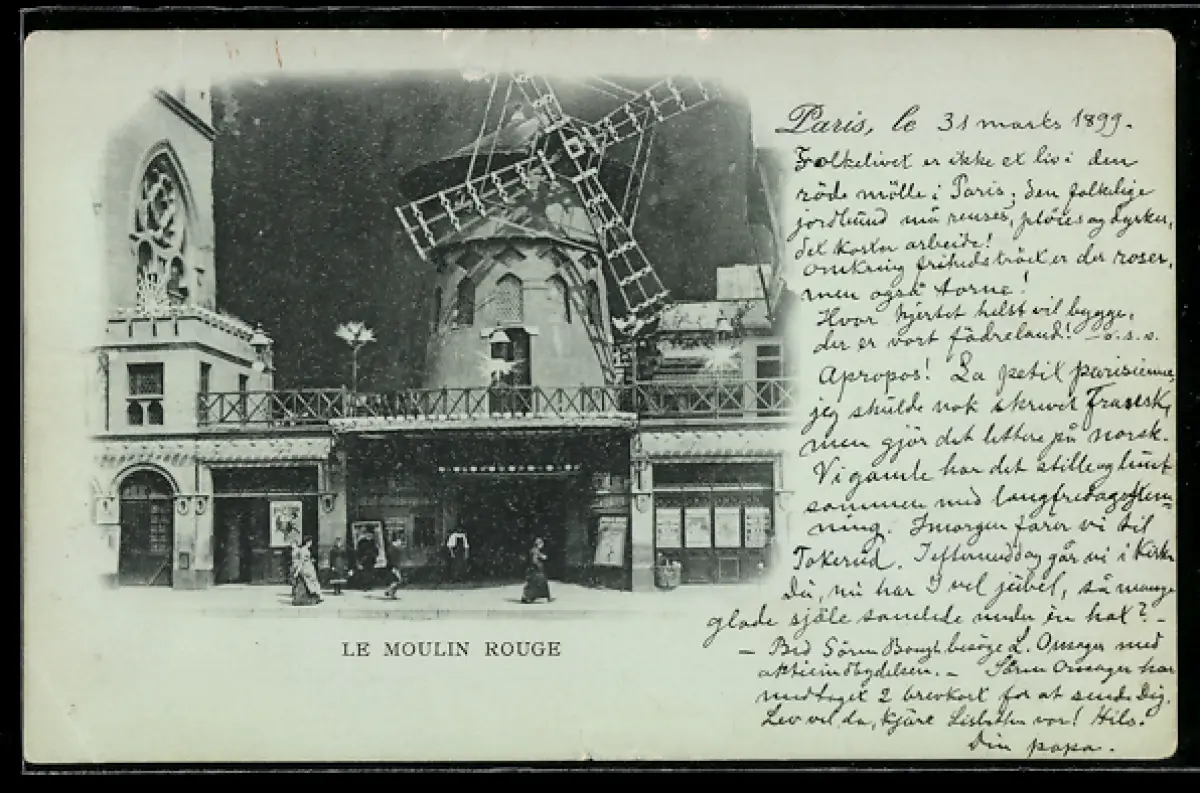 Paris, le 31 marts 1899.
Folkelivet er ikke et liv i den
röde mölle i Paris; den folkelige
jordbund må renses, plöies og dyrkes,
det koster arbeide!
omkring frihedstræet er der roser,
men også torne!
Hvor hjertet helst vil bygge,
der er vort födreland! – o.s.v.
Apropos! La petit parisienne,
jeg skulde nok skrevet Fransk,
men gjör det lettere på norsk.
Vi gamle har det stille og lunt
sammen med langfredagsstem-
ning. Imorgen farer vi til
Tokerud. I eftermiddag går vi i Kirke
Du, nu har I vel jubel, så mange
glade sjæle samlede under én hat? –
– Bed Sören besöge L. Onsager med
aktieindbydelsen. – Sören Onsager har
modtaget 2 brevkort for at sende Dig.
Lev vel da, kjære Lisbethen vor! Hils.
Din papa.
LE MOULIN ROUGE